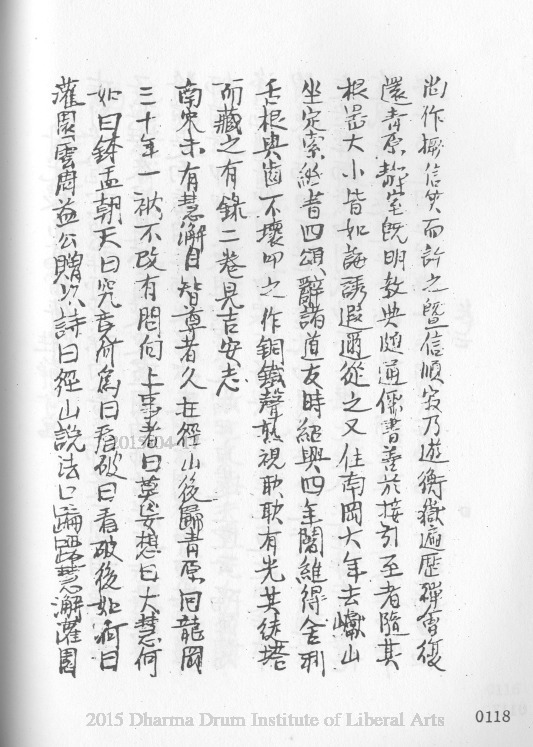 尚作掷信笑而許之暨信順寂乃遊衡嶽遍歷禪會復
還青原靜室既明教典随通儒書善於接引至者隨其
根器大小皆如誨誘遐邇從之又住南岡大年去巘山
坐定索紙書四頌辭諸道友時紹興四年闍維得舍利
舌根與齒不壞叩之作銅鐵聲熟視耿耿有光其徒塔
而藏之有錄二卷見吉安志
南宋末有慧澥目智尊者久在徑山後歸青原同龍岡
三十年一衲不改有問向上事者曰莫妄想曰大慧何
如曰鉢盂朝天曰究竟所爲曰看破曰看破後如何曰
灌園雲周益公贈以詩曰徑山說法口瀾翻慧澥灌園
2015.04.17
2015 Dharma Drum Institute of Liberal Arts
0118